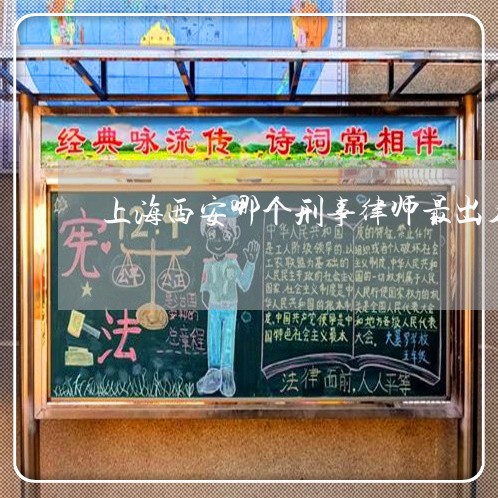 经典咏流传 诗词常相伴
上海西安哪个刑事律师最出
12·4
宪法
公平
公正
总章程
中华人民共和国
是工人阶级领导的,以
工农联盟为基础的
人民民主专政的社会主义
国家,社会主义制度是中
华人民共和国的根本制
度,中国共产党领导是中
国特色社会主义最本
质的特征,禁止任何
组织或者个人破坏社会
主义制度,中华人民共和
国的一切权利属于人民,
人民行使国家权力的机
关是全国人民代表大会
和地方各级人民代表
大会。
五年级
法律面前,人人平等